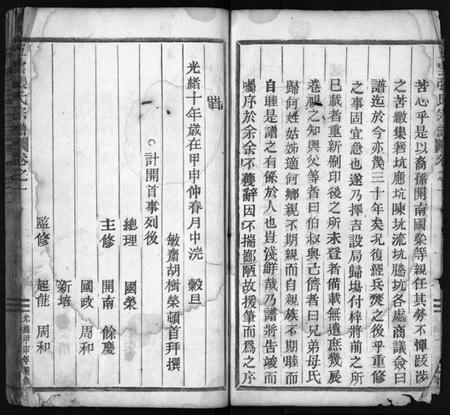 苦心乎是以裔孫開南國榮等親任其勞不憚跋涉
之苦繳集嵇坑鹿坑陳坑流坑勝坑各處商議僉曰
譜迄於今亦幾三十年矣況復經兵燹之後乎重修
之事固宜急也遂乃擇吉設局歸塲付梓將前之所
已載者重新刷印後之所未登者備載無遺庶幾展
卷視之知與父等者曰伯叔與己儕者曰兄弟母氏
歸何姓姑姊適何鄉親不期親而自親族不期睦而
自睦是譜之有係於人也豈淺鮮哉乃譜將告竣而
囑序於余余不獲辭因不揣鄙陋故援筆而爲之序
光緒十年歲在甲申仲春月中浣 穀旦
敏齋胡樹榮頓首拜撰
計開首事列後
總理 國榮
主修 開南 餘慶
國政 周和
新培
監修 起能 周和
張氏宗譜
卷之一
光緒甲申年重修